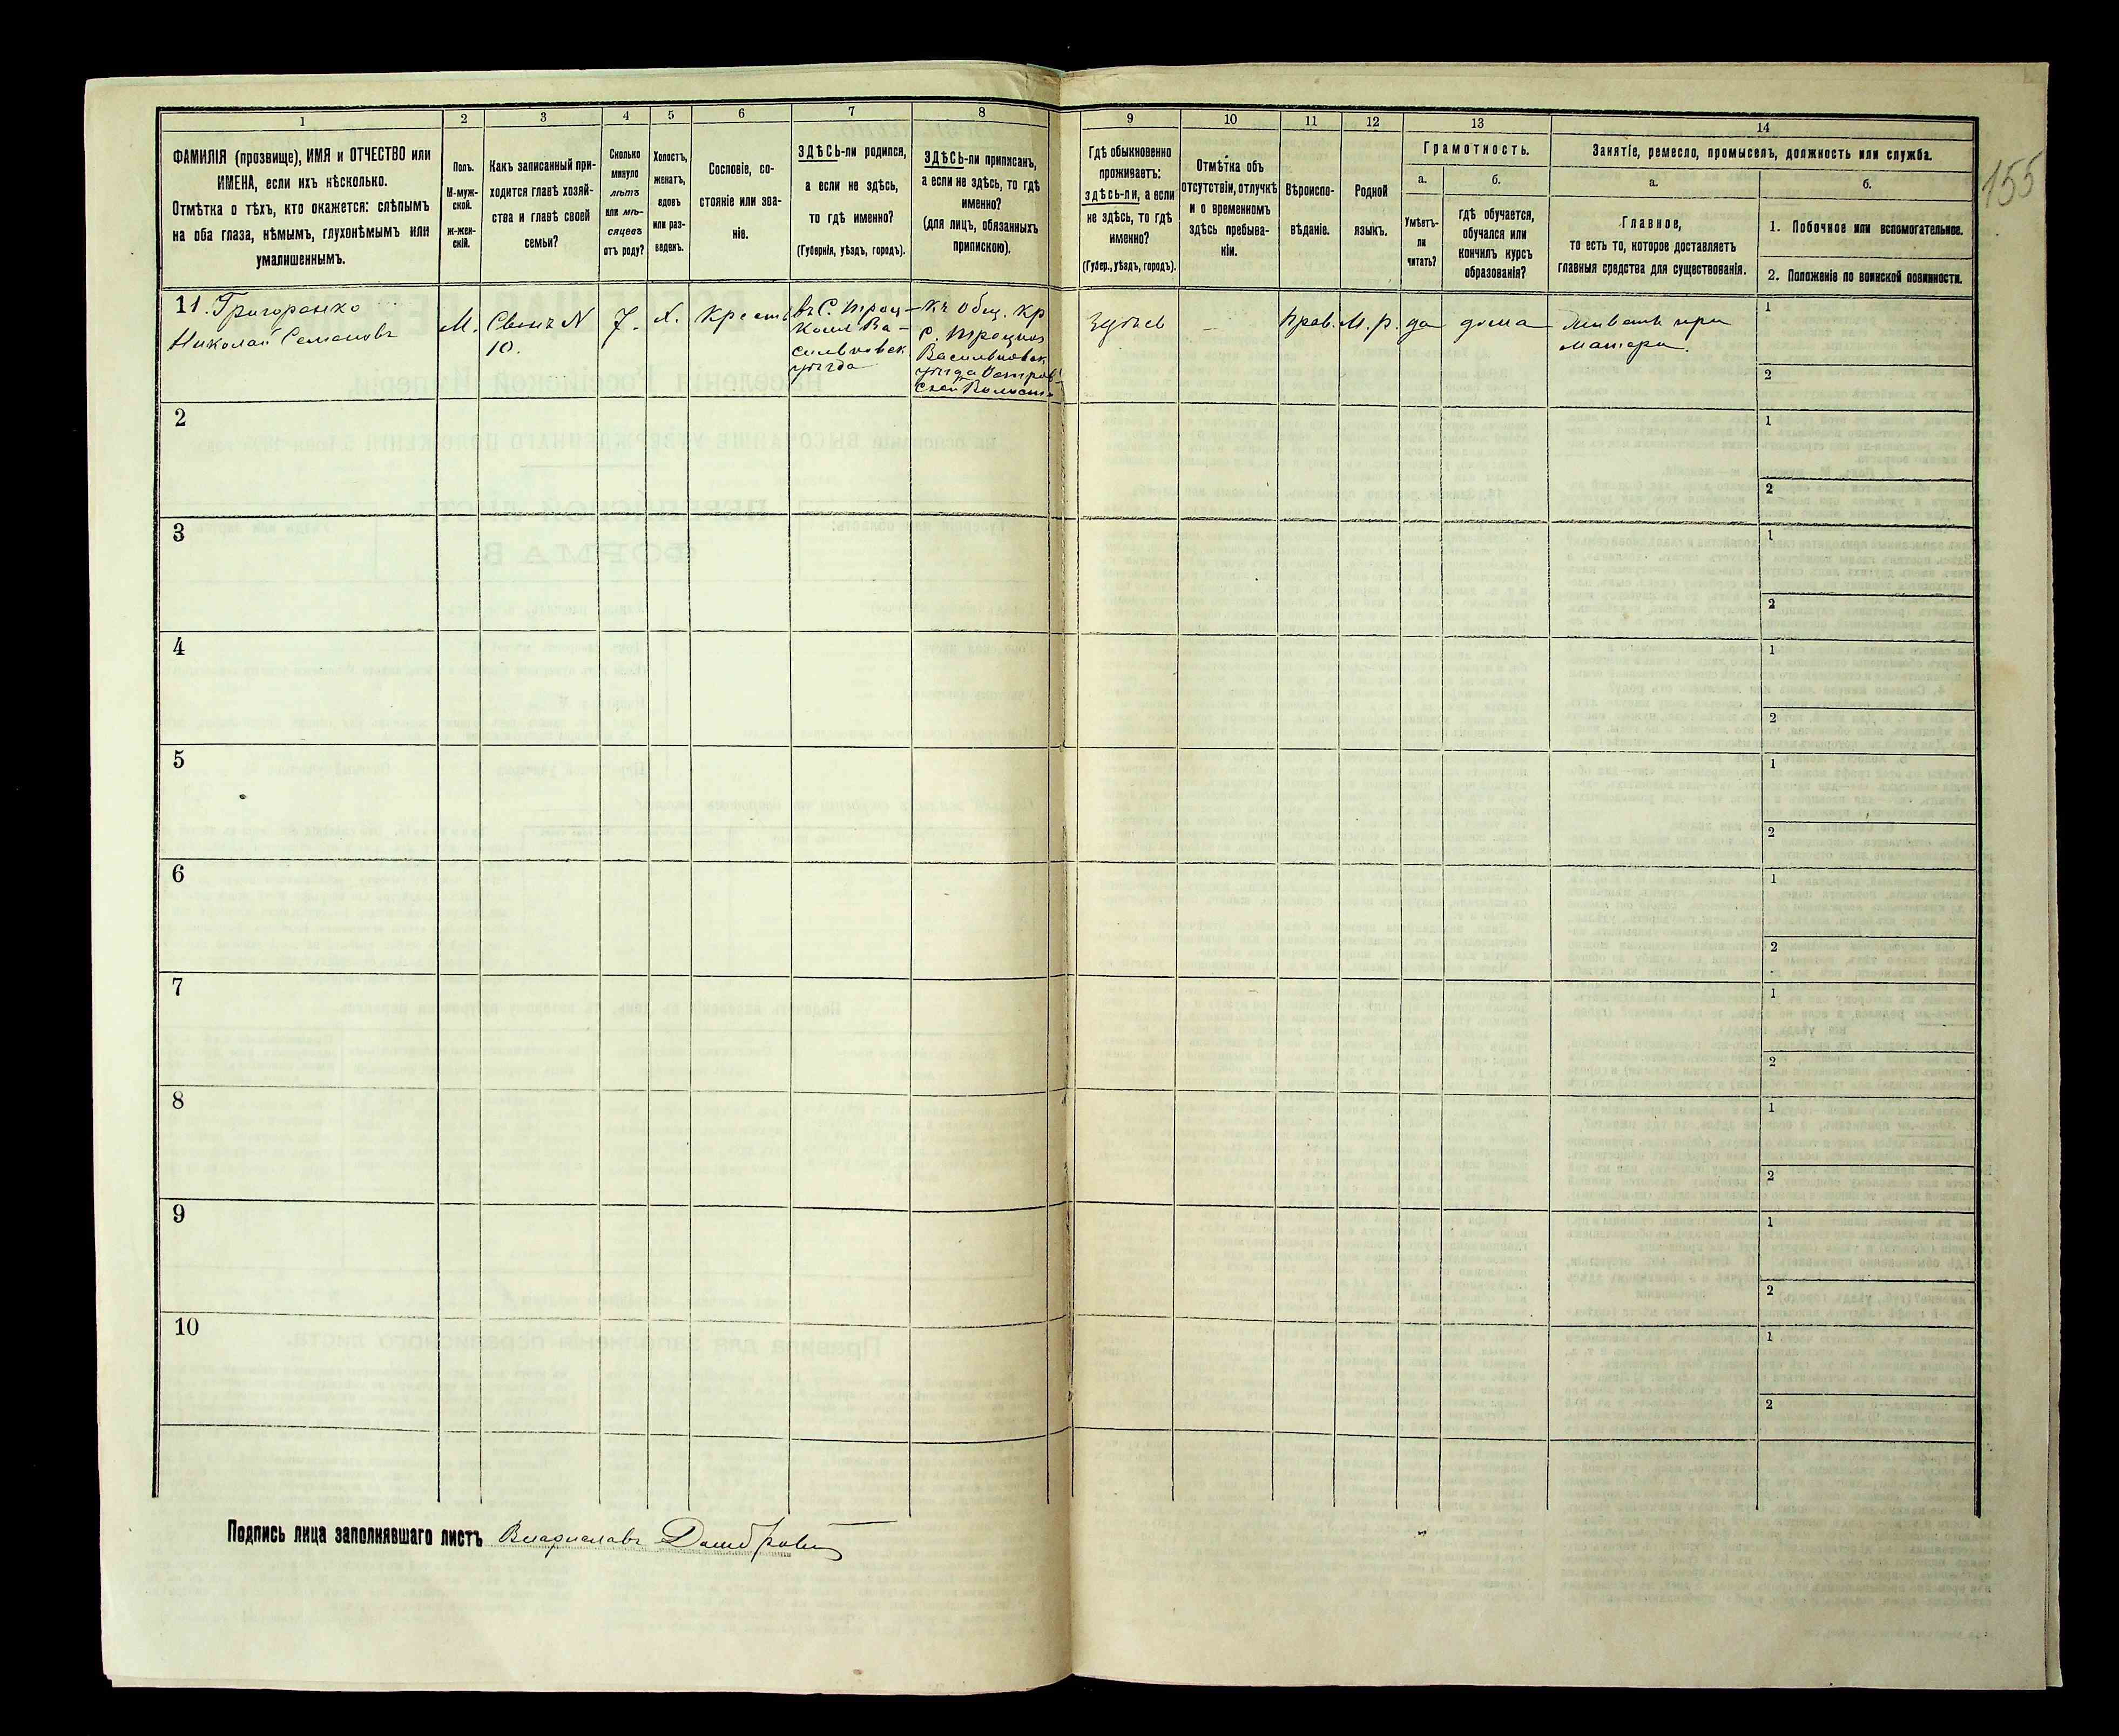 155
1
2
3
4
5
6
7
8
9
10
11
12
13
14
ФАМИЛІЯ (прозвище), ИМЯ и ОТЧЕСТВО или
ИМЕНА, если ихъ нѣсколько.
Отмѣтка о тѣхъ, кто окажется: слѣпымъ
на оба глаза, нѣмымъ, глухонѣмымъ или
умалишеннымъ.
Полъ.
М-муж-
ской.
ж-жен-
скій.
Какъ записанный при-
ходится главѣ хозяй-
ства и главѣ своей
семьи?
Сколько
минуло
лѣтъ
или мѣ-
сяцевъ
отъ роду?
Холостъ,
женатъ,
вдовъ
или раз-
веденъ.
Сословіе, со-
стояніе или зва-
ніе.
ЗДѢСЬ-ли родился,
а если не здѣсь,
то гдѣ именно?
(Губернія, уѣздъ, городъ).
ЗДѢСЬ-ли приписанъ,
а если не здѣсь, то гдѣ
именно?
(для лицъ, обязанныхъ
припискою).
Гдѣ обыкновенно
проживаетъ:
здѣсь-ли, а если
не здѣсь, то гдѣ
именно?
(Губер., уѣздъ, городъ).
Отмѣтка объ
отсутствіи, отлучкѣ
и о временномъ
здѣсь пребыва-
ніи.
Вѣроиспо-
вѣданіе.
Родной
языкъ.
Грамотность.
а.
Умѣетъ-
ли
читать?
б.
гдѣ обучается,
обучался или
кончилъ курсъ
образованія?
Занятіе, ремесло, промыселъ, должность или служба.
а.
Главное,
то есть то, которое доставляетъ
главныя средства для существованія.
б.
1. Побочное или вспомогательное.
2. Положеніе по воинской повинности.
11. Григоренко
Николай Семеновъ
М.
Сынъ N
10.
7.
Х.
Крест.
въ С. Троц-
Ва-
сильковск
уѣзда
Къ Общ. Кр
С. Троцкой
Васильковск
уѣзда
Здѣсь
–
Прав.
М. р.
да
дома
Живетъ при
матери.
1
2
2
1
2
3
1
2
4
1
2
5
1
2
6
1
2
7
1
2
8
1
2
9
1
2
10
1
2
Подпись лица заполнявшаго листъ Владиславъ